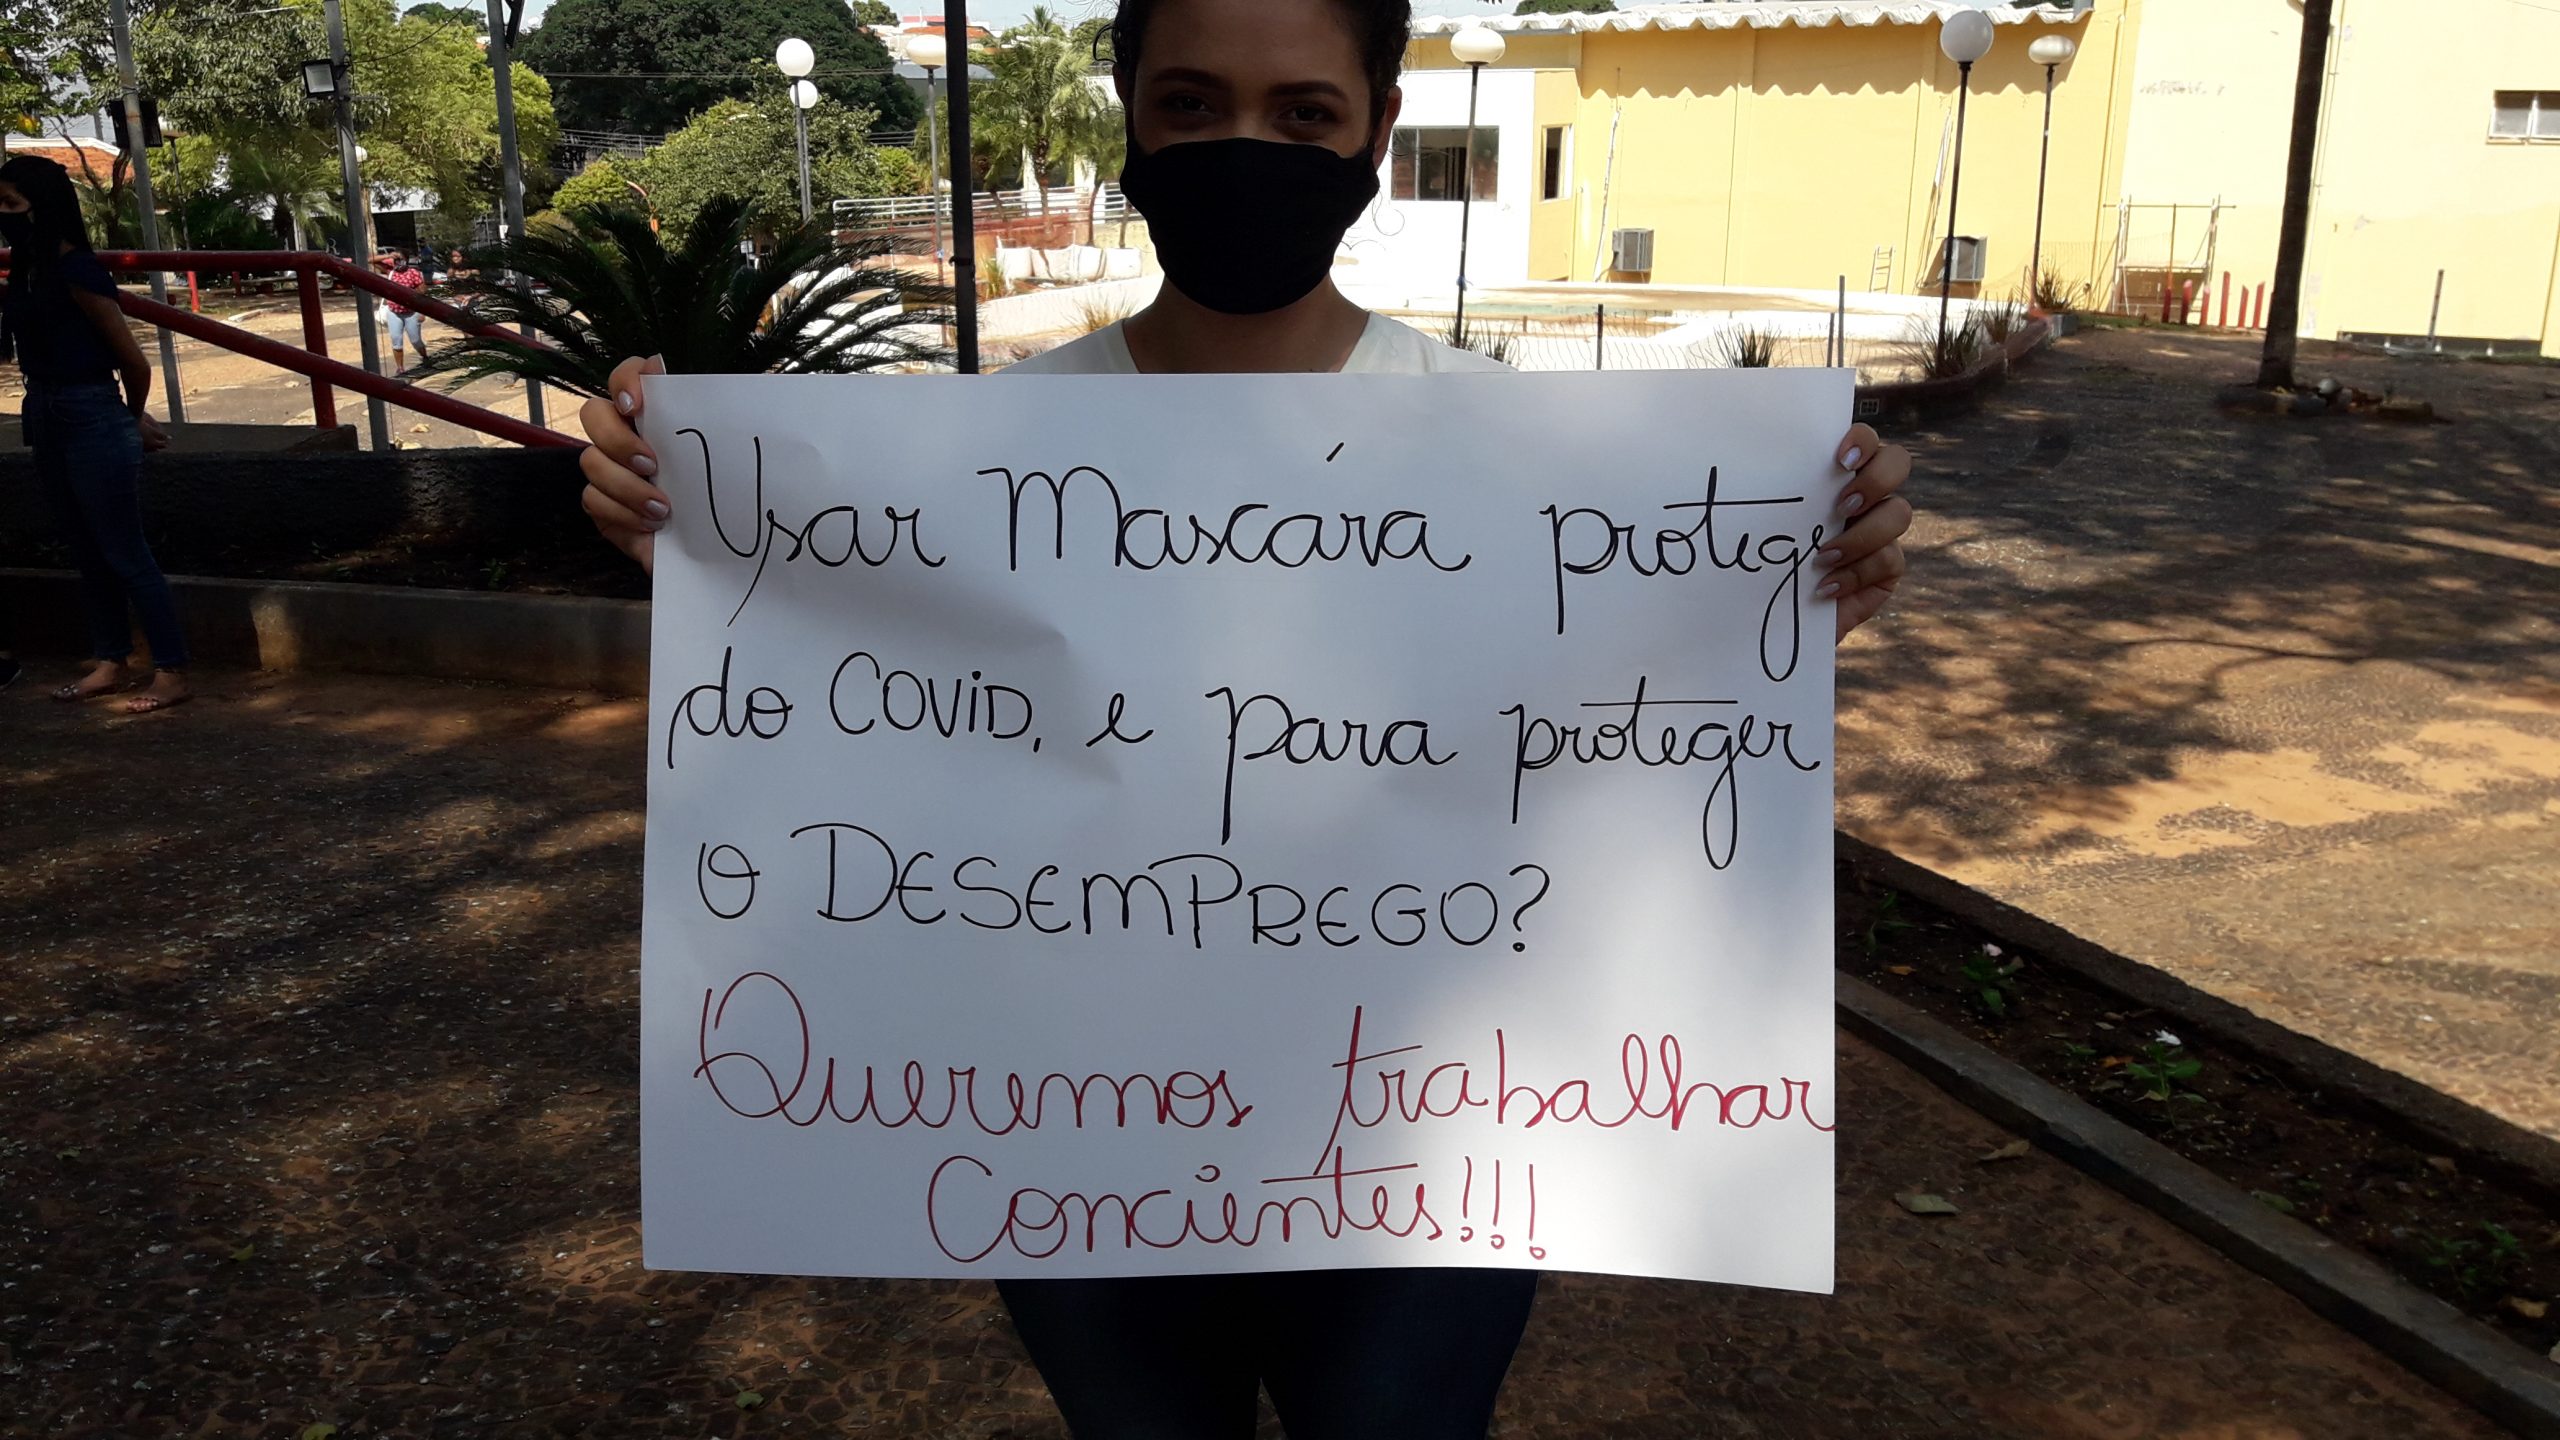 Usar Mascára protege
do COVID, e para proteger
o DESEMPREGO?
Queremos trabalhar
Concientes!!!